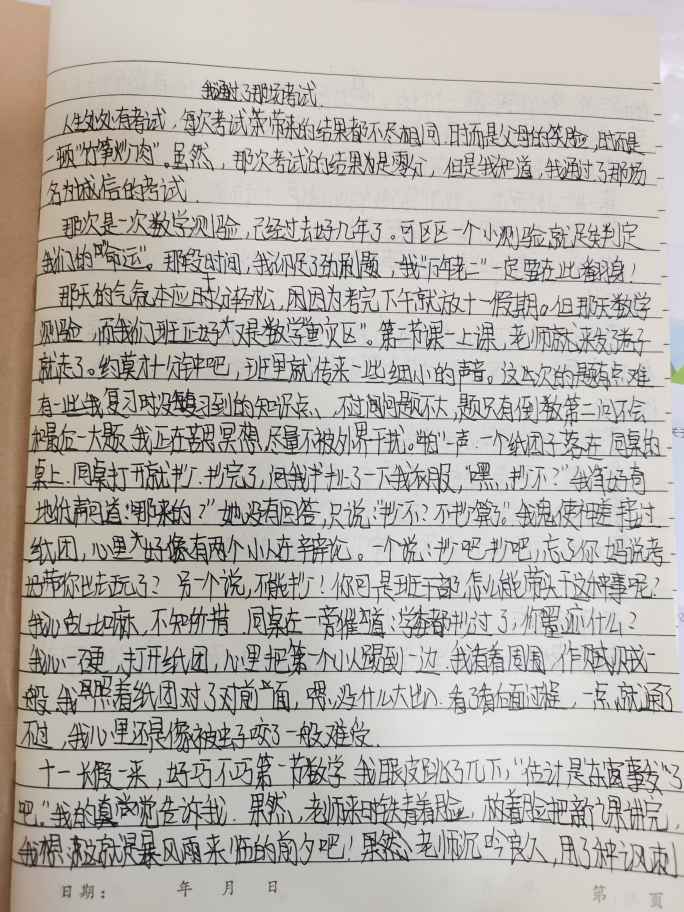 我通过了那场考试.
人生处处有考试，每次考试所带来的结果都不尽相同.时而是父母的笑脸，时而是
一顿“竹笋炒肉”。虽然，那次考试的结果为是零分，但是我知道，我通过了那场
名为诚信的考试.
那次是一次数学测验，已经过去好几年了。可区区一个小测验就足矣判定
我们的“命运”。那段时间，我们足了劲刷题，我“万年老二”一定要在此翻身！
那天的气氛本应十分轻松，因为考完下午就放十一假期。但那天数学
测验，而我们班正好又是数学“重灾区”。第二节课一上课，老师就来发了卷子
就走了。约莫才十分钟吧，班里就传来一些细小的声音。这次的题有点难
有一些我复习时没复习到的知识点、不过问题不大，题只有倒数第二问不会
和最后一大题.我正在苦思冥想，尽量不被外界干扰。“啪”一声.一个纸团子落在同桌的
桌上.同桌打开就抄.抄完了，问我扯了一下我衣服，“嘿，抄不？”我好奇
地低声问道：“哪来的？”她没有回答，只说：“抄不？不抄算了。”我鬼使神差接过
纸团，心里好像有两个小人在辩论。一个说：抄吧抄吧，忘了你妈说考
好带你出去玩了？另一个说，不能抄！你可是班干部，怎么能带头干这种事呢？
我心乱如麻，不知所措.同桌在一旁催道：都抄过了，你墨迹什么？
我心一硬，打开纸团，心里把第一个小人踢到一边.我看看周围.作贼似
般.我照着纸团对了对前面，嗯，没什么大出入.看了看后面过程，一点就通了
不过，我心里还是像被虫子咬了一般难受.
十一长假一来，好巧不巧第一节数学.我眼皮跳了几下，“估计是东窗事发”了
吧。”我的直觉告诉我.果然，老师来时铁青着脸，板着脸把新课讲完，
我想这就是暴风雨来临的前夕吧！果然、老师沉吟良久，用了种讽刺
日期： 年 月 日 第 页